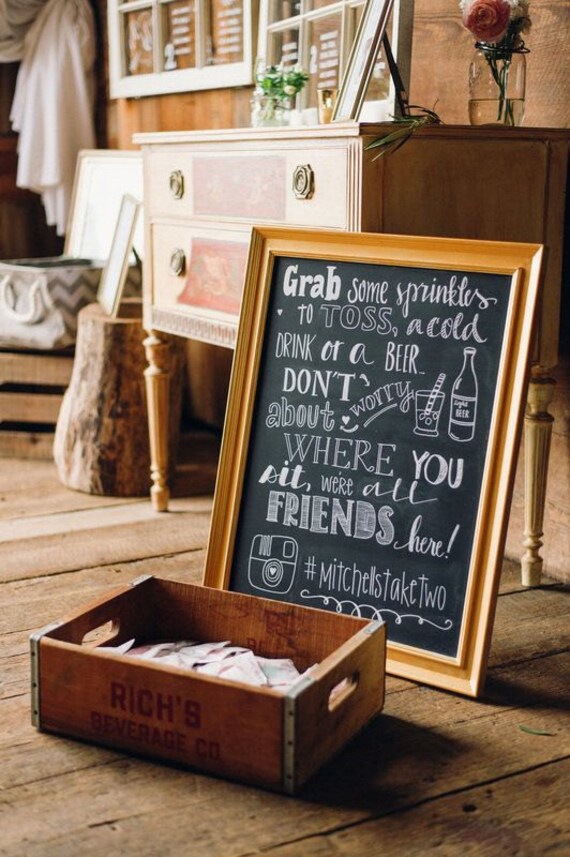 Grab some sprinkles
to TOSS, a cold
DRINK or a BEER...
DON'T worry
about
WHERE YOU
sit, we're all
FRIENDS here!
#mitchellstaketwo
Light
BEER
RICH'S
BEVERAGE CO